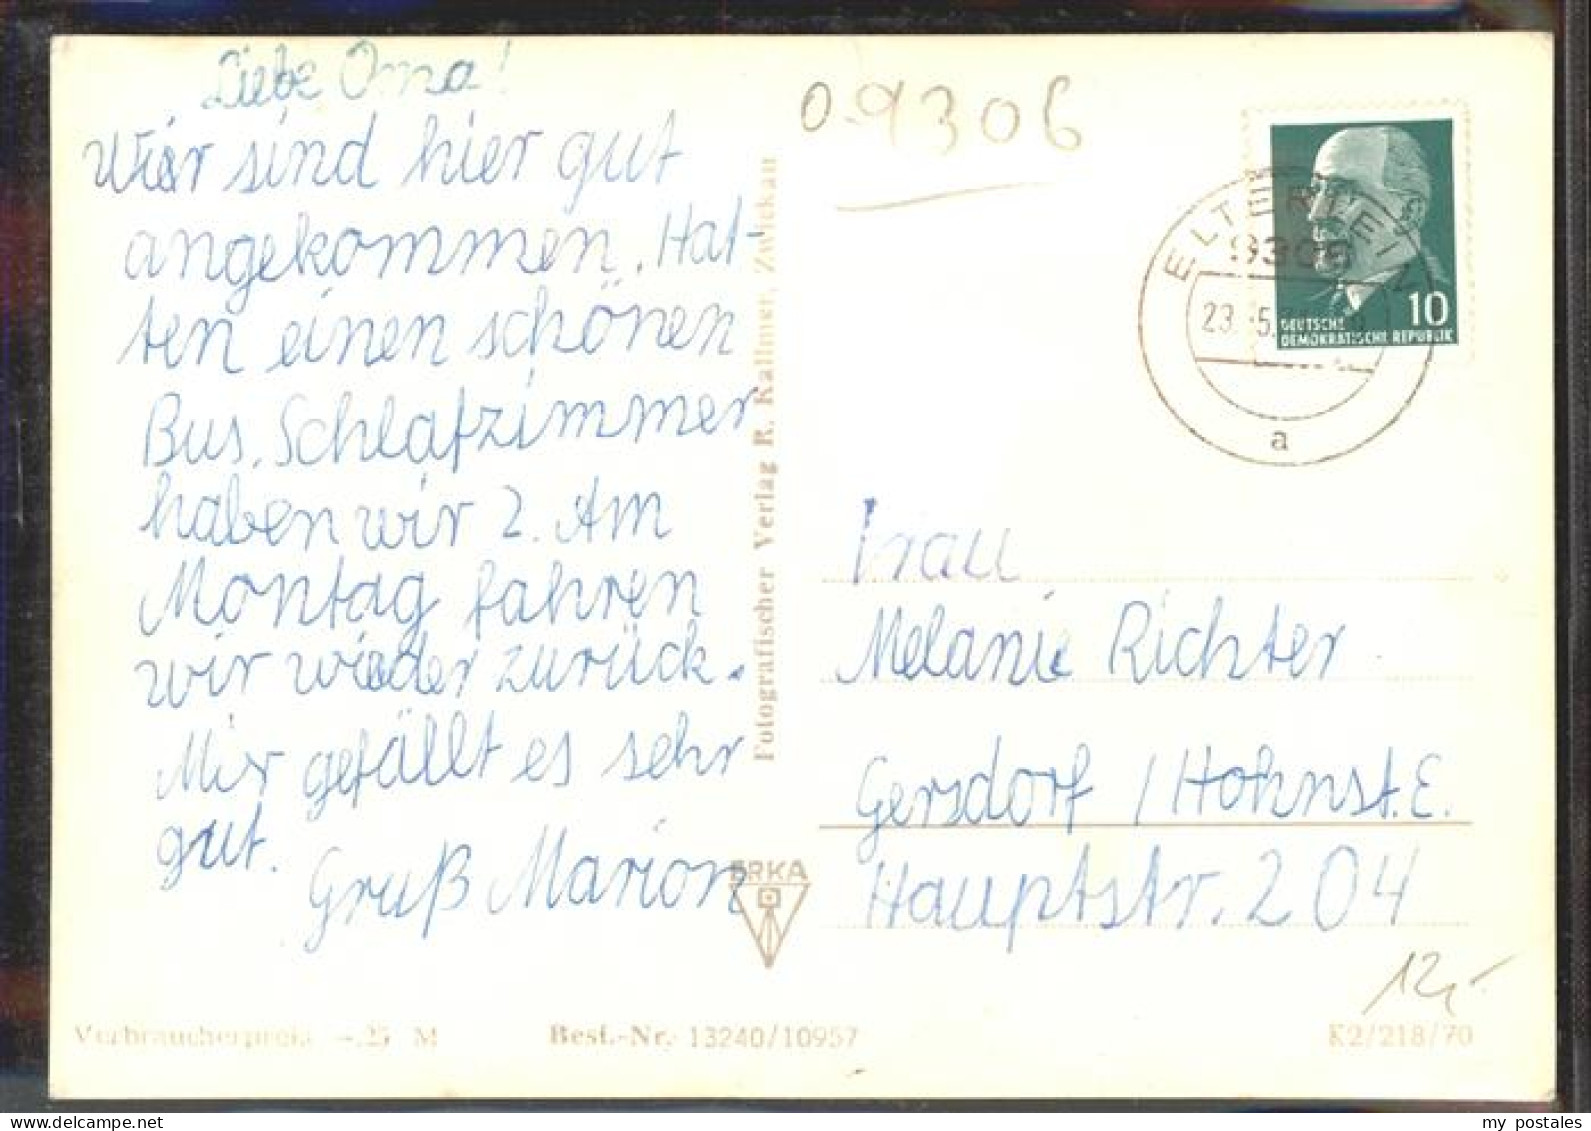 Liebe Oma!
Wir sind hier gut
angekommen. Hat-
ten einen schönen
Bus. Schlafzimmer
haben wir 2. Am
Montag fahren
wir wieder zurück.
Mir gefällt es sehr
gut.
Gruß Marion
Fotografischer Verlag R. Kallmer, Zwickau
ERKA
09306
ELTERLEIN
9306
23. 5.
a
10
DEUTSCHE
DEMOKRATISCHE REPUBLIK
Frau
Melanie Richter
Gersdorf / Hohnst. E.
Hauptstr. 204
12,-
Verbraucherpreis -.25 M
Best.-Nr. 13240/10957
K2/218/70
my postales